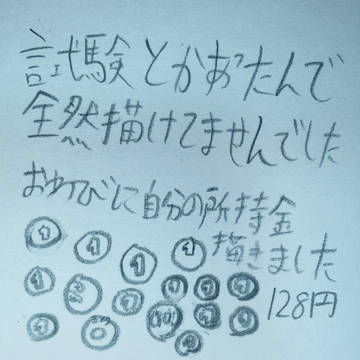 試験とかあったんで
全然描けてませんでした
おわびに自分の所持金
描きました
128円